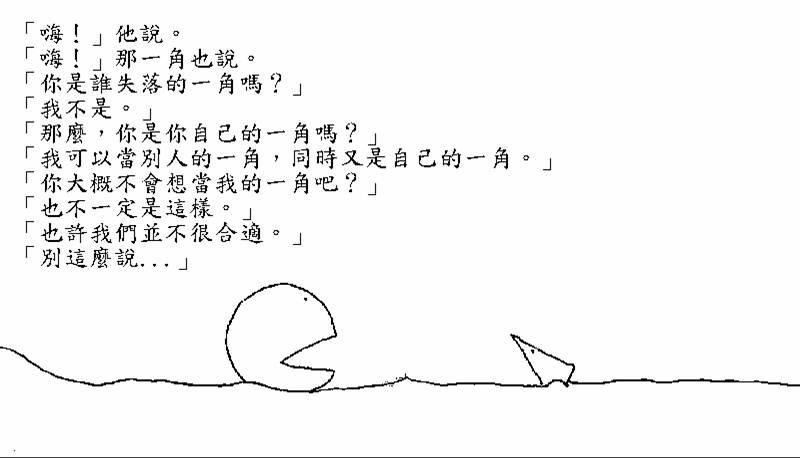 「嗨！」他說。
「嗨！」那一角也說。
「你是誰失落的一角嗎？」
「我不是。」
「那麼，你是你自己的一角嗎？」
「我可以當別人的一角，同時又是自己的一角。」
「你大概不會想當我的一角吧？」
「也不一定是這樣。」
「也許我們並不很合適。」
「別這麼說...」